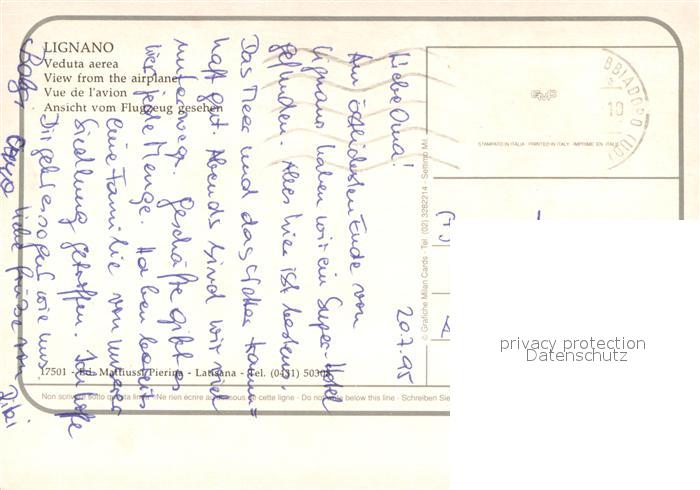 LIGNANO
Veduta aerea
View from the airplane
Vue de l'avion
Ansicht vom Flugzeug gesehen
20.7.95
Liebe Oma!
Am östlichsten Ende von
Lignano haben wir ein Super-Hotel
gefunden. Alles hier ist bestens.
Das Meer und das Essen traum=
haft gut. Abends sind wir viel
unterwegs. Geschäfte gibt es
hier jede Menge. Haben bereits
eine Familie von unserer
Siedlung getroffen. Ich hoffe
Dir geht es so gut wie uns.
liebe Grüße von
17501 - Ed. Mattiussi Pierina - Latisana - Tel. (0431) 50308
© Grafiche Milan Cards - Tel. (02) 3282214 - Settimo Mi.
STAMPATO IN ITALIA PRINTED IN ITALY IMPRIMÉ EN ITALIE
BBIADORO (UD)
10
Non scrivere sotto questa linea - Ne rien écrire au dessous de cette ligne - Do not write below this line - Schreiben Sie
privacy protection
Datenschutz